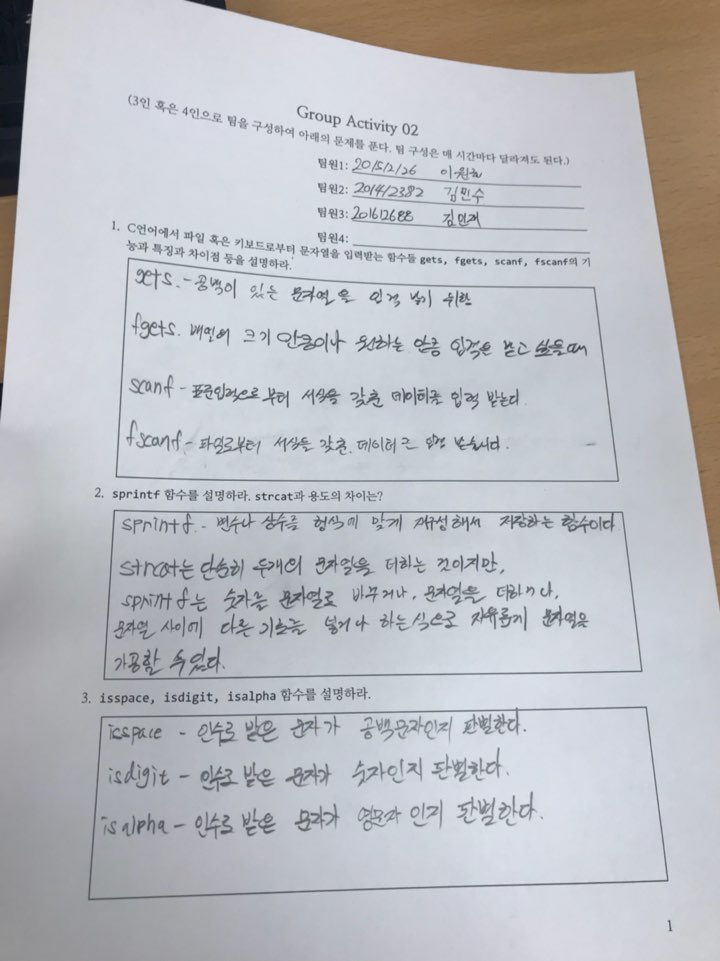 Group Activity 02
(3인 혹은 4인으로 팀을 구성하여 아래의 문제를 푼다. 팀 구성은 매 시간마다 달라져도 된다.)
팀원1: 201512126
팀원2: 201412382 김민수
팀원3: 201612688 김민재
팀원4:
1. C언어에서 파일 혹은 키보드로부터 문자열을 입력받는 함수들 gets, fgets, scanf, fscanf의 기
능과 특징과 차이점 등을 설명하라.
gets. - 공백이 있는 문자열을 입력 받기 위한
fgets. 배열의 크기 만큼이나 원하는 만큼 입력을 받고 싶을때
scanf - 표준입력으로 부터 서식을 갖춘 데이터를 입력 받는다.
fscanf - 파일로부터 서식을 갖춘 데이터를 입력 받습니다.
2. sprintf 함수를 설명하라. strcat과 용도의 차이는?
sprintf. - 변수나 상수를 형식에 맞게 재구성해서 저장하는 함수이다
strcat는 단순히 두개의 문자열을 더하는 것이지만,
sprintf는 숫자를 문자열로 바꾸거나, 문자열을 더하거나,
문자열 사이에 다른 기호를 넣거나 하는식으로 자유롭게 문자열을
가공할 수있다.
3. isspace, isdigit, isalpha 함수를 설명하라.
isspace - 인수로 받은 문자가 공백문자인지 판별한다.
isdigit - 인수로 받은 문자가 숫자인지 판별한다.
isalpha - 인수로 받은 문자가 영문자 인지 판별한다.
1